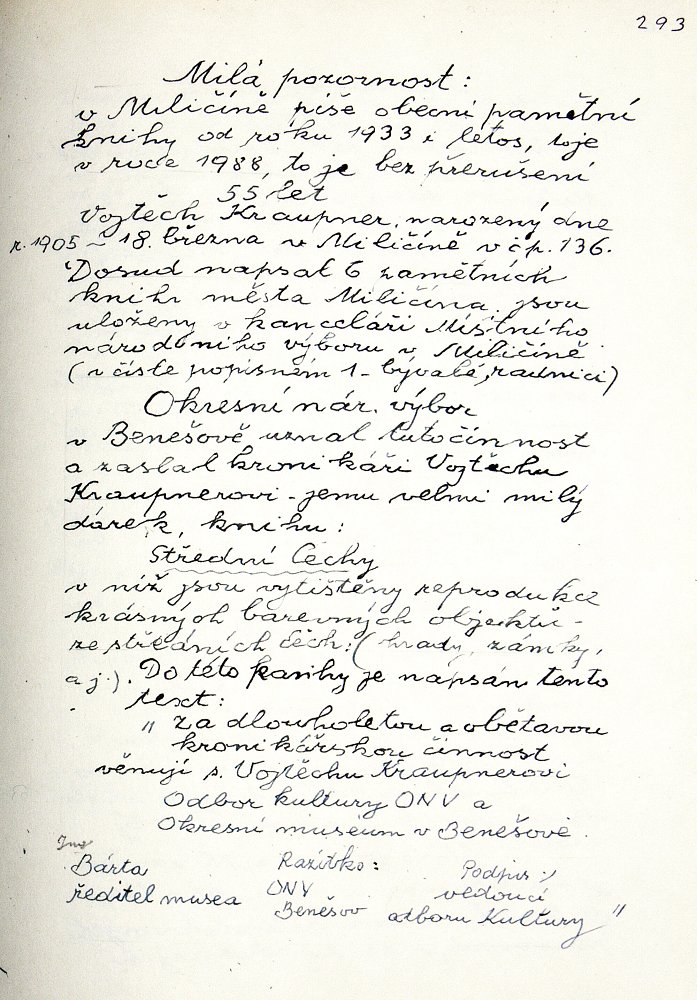 293
Milá pozornost:
v Miličíně píše obecní pamětní
knihy od roku 1933 i létos, toje
v roce 1988, to je bez přerušení
55 let
Vojtěch Kraupner, narozený dne
r. 1905 - 18. března v Miličíně v čp. 136.
Dosud napsal 6 pamětních
knih města Miličína, jsou
uloženy v kanceláři Místního
národního výboru v Miličíně
(v čísle popisném 1 - bývalé radnici)
Okresní nár. výbor
v Benešově uznal tuto činnost
a zaslal kronikáři Vojtěchu
Kraupnerovi - jemu velmi milý
dárek, knihu:
Střední Čechy
v níž jsou vytištěny reprodukce
krásných barevných objektů -
ze středních čech: (hrady, zámky,
a j.). Do této knihy je napsán tento
text:
" za dlouholetou a obětavou
kronikářskou činnost
věnují s. Vojtěchu Kraupnerovi
Odbor kultury ONV a
Okresní museum v Benešově.
Ing
Bárta
ředitel musea
Razítko:
ONV
Benešov
Podpis:
vedoucí
odboru Kultury "